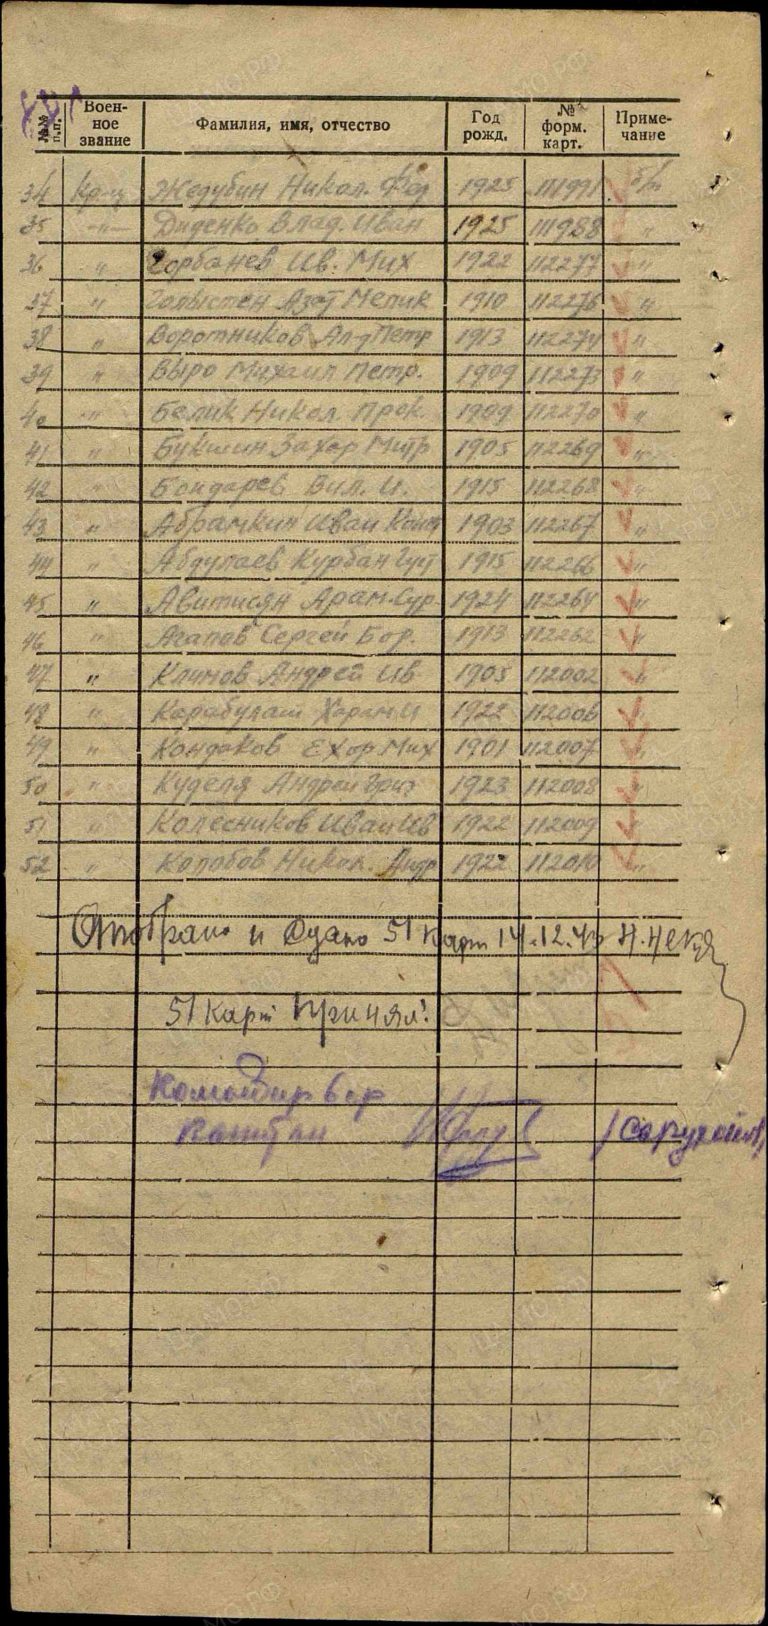 №№ п.п. Воен- ное звание Фамилия, имя, отчество Год рожд. № форм. карт. Приме- чание
34 Кр-ц Жедубин Никол. Фед 1925 111991 б/п
35 -"- Диденко Влад. Иван 1925 111988 "
36 " Горбанев Ив. Мих 1922 112277 "
37 " Галыстен Азат Мелик 1910 112276 "
38 " Воротников Ал-д Петр 1913 112274 "
39 " Выро Михаил Петр. 1909 112273 "
40 " Белик Никол. Прок. 1909 112270 "
41 " Букшин Захар Митр 1905 112269 "
42 " Бондарев Вил. И. 1915 112268 "
43 " Абрамкин Иван Конст 1903 112267 "
44 " Абдулаев Курбан 1915 112266 "
45 " Авитисян Арам. Сур 1924 112264 "
46 " Агапов Сергей Бор. 1913 112262 "
47 " Климов Андрей Ив 1905 112002 "
48 " Карабулат Харам И 1922 112006 "
49 " Кондаков Ехор Мих 1901 112007 "
50 " Куделя Андрей Григ 1923 112008 "
51 " Колесников Иван Ив 1922 112009 "
52 " Колобов Никол. Андр 1922 112010 "
Отобрано и сдано 51 карт 14.12.43
51 карт принял:
Командир